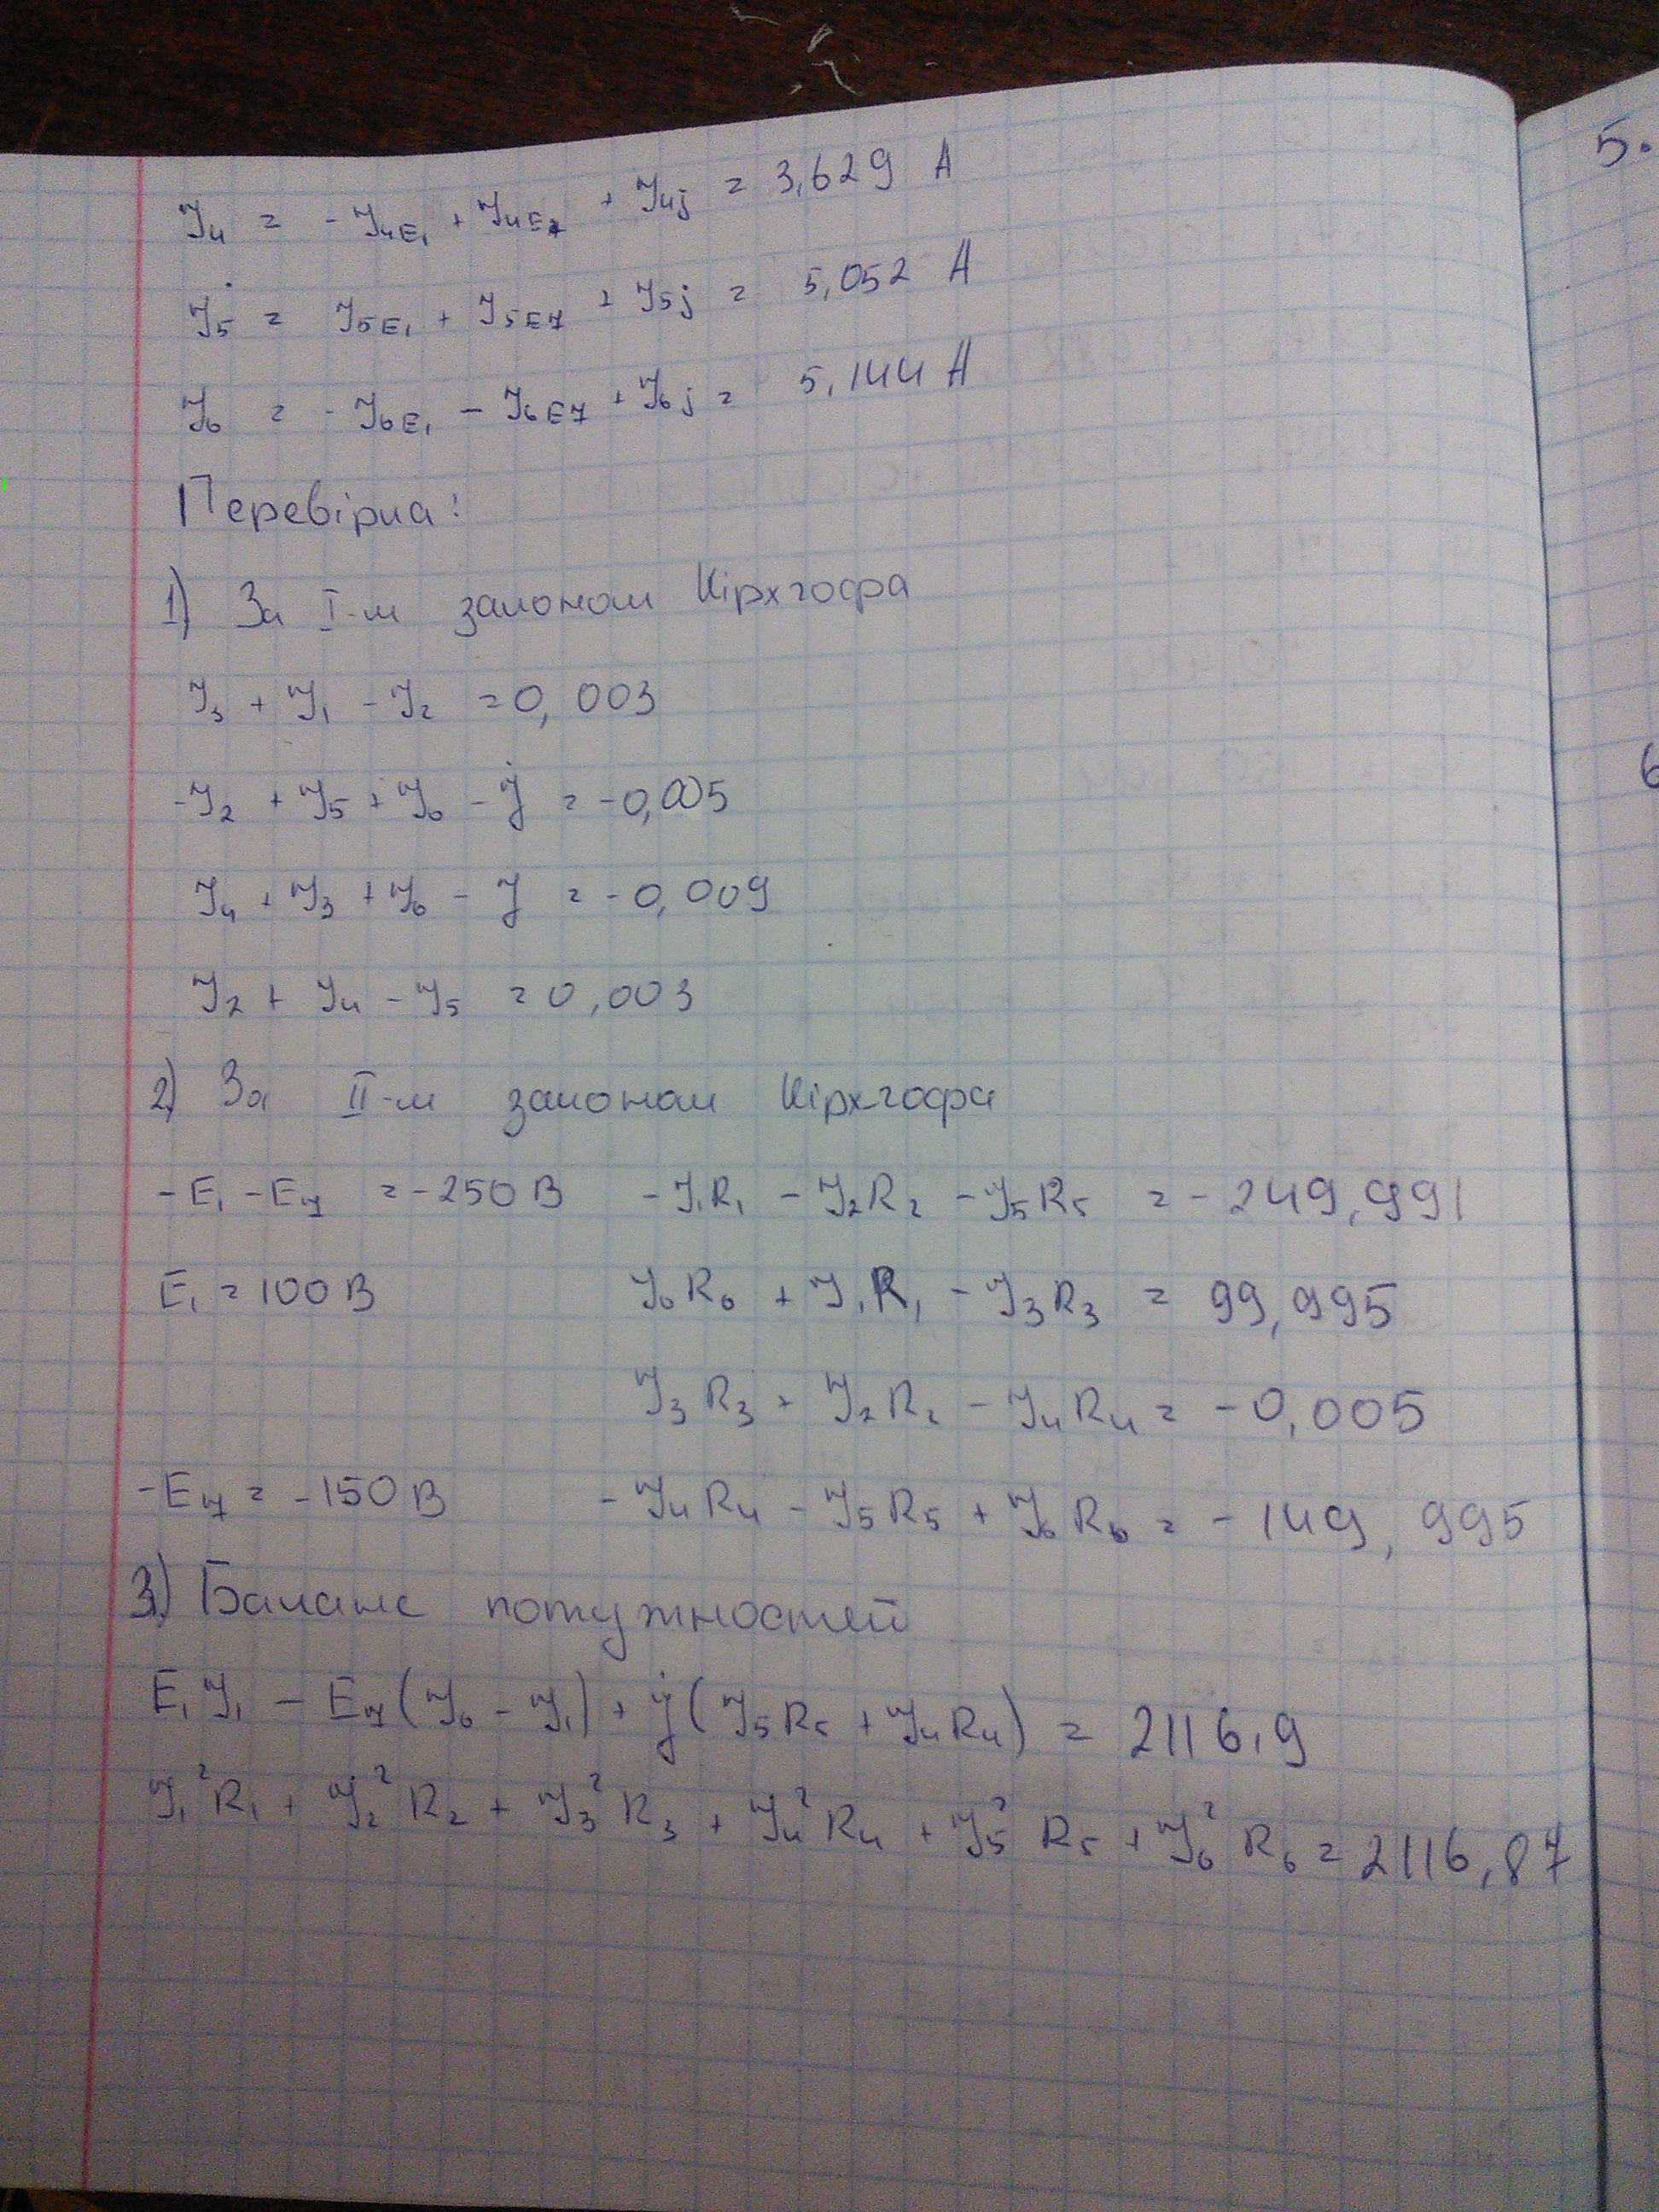 I₄ = - I₄E₁ + I₄E₇ + I₄j = 3,629 А
I₅ = I₅E₁ + I₅E₇ + I₅j = 5,052 А
I₆ = - I₆E₁ - I₆E₇ + I₆j = 5,144 А
Перевірка:
1) За I-м законом Кірхгофа
I₃ + I₁ - I₂ = 0,003
-I₂ + I₅ + I₆ - j = -0,005
I₄ + I₃ + I₆ - J = -0,009
I₂ + I₄ - I₅ = 0,003
2) За II-м законом Кірхгофа
-E₁ - E₇ = -250 В - I₁R₁ - I₂R₂ - I₅R₅ = -249,991
E₁ = 100 В I₆R₆ + I₁R₁ - I₃R₃ = 99,995
I₃R₃ + I₂R₂ - I₄R₄ = -0,005
-E₇ = -150 В - I₄R₄ - I₅R₅ + I₆R₆ = -149,995
3) Баланс потужностей
E₁I₁ - E₇(I₆ - I₁) + j(I₅R₅ + I₄R₄) = 2116,9
I₁²R₁ + I₂²R₂ + I₃²R₃ + I₄²R₄ + I₅²R₅ + I₆²R₆ = 2116,87
5.
6